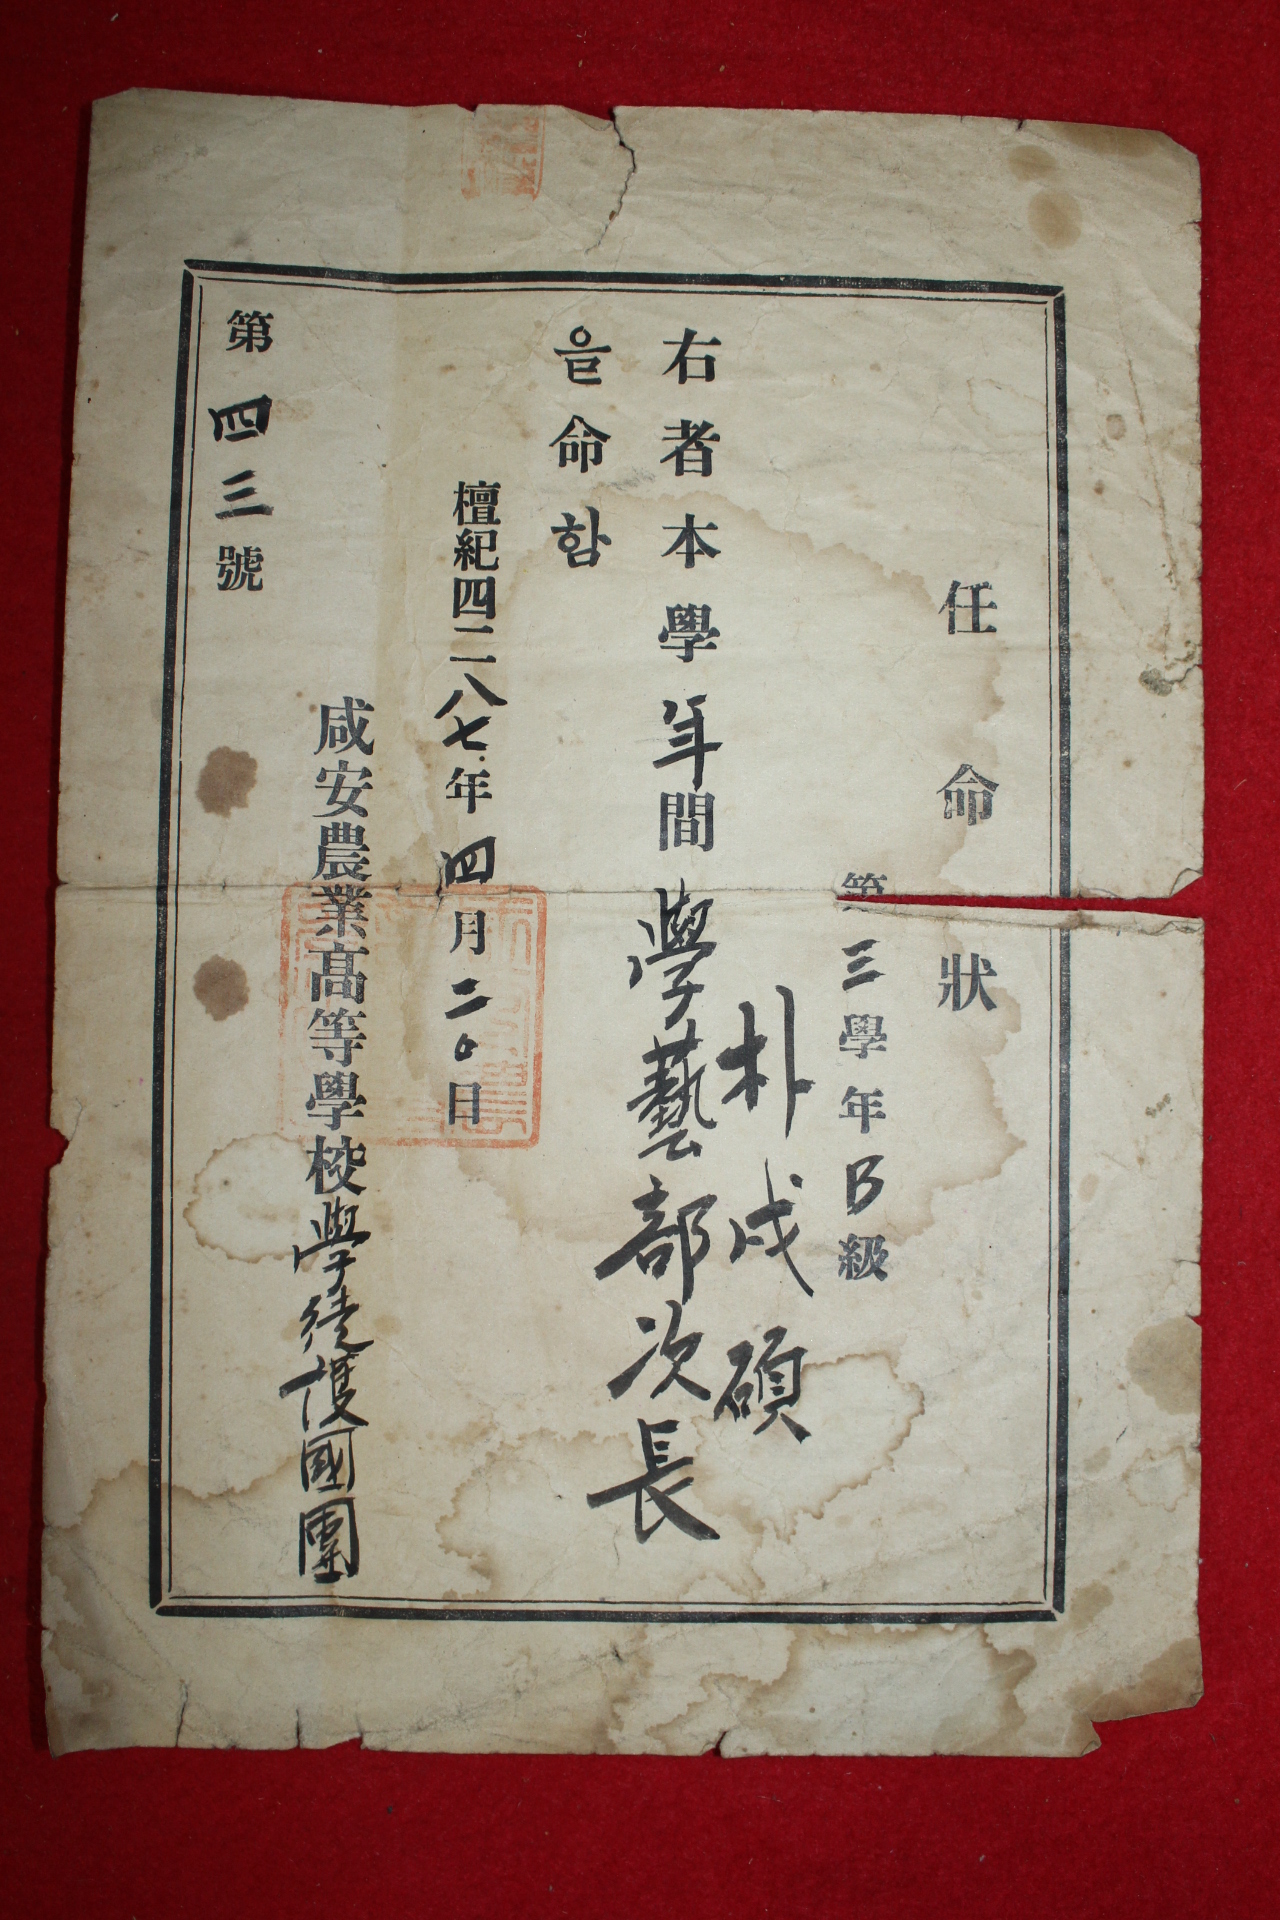 任命狀
第三學年B級
朴戍碩
右者本學年間學藝部次長
을命함
檀紀四二八七年四月二〇日
咸安農業高等學校學徒護國團
第四三號